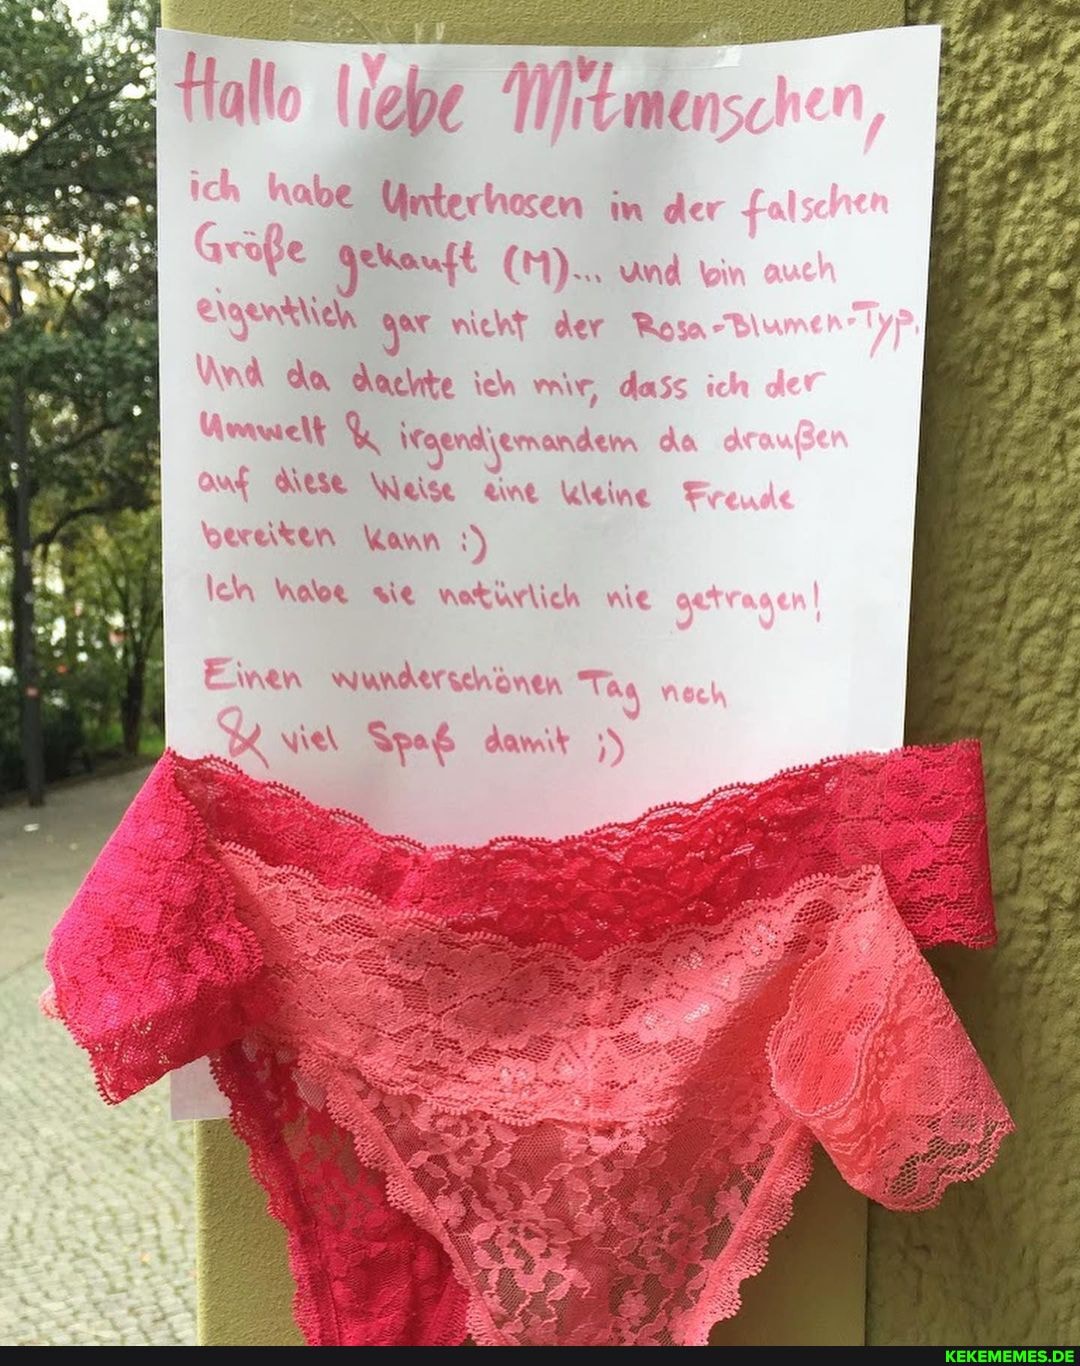 Hallo liebe Mitmenschen,
ich habe Unterhosen in der falschen
Größe gekauft (M)... und bin auch
eigentlich gar nicht der Rosa-Blumen-Typ.
Und da dachte ich mir, dass ich der
Umwelt & irgendjemandem da draußen
auf diese Weise eine kleine Freude
bereiten kann :)
Ich habe sie natürlich nie getragen!
Einen wunderschönen Tag noch
& viel Spaß damit ;)
KEKEMEMES.DE